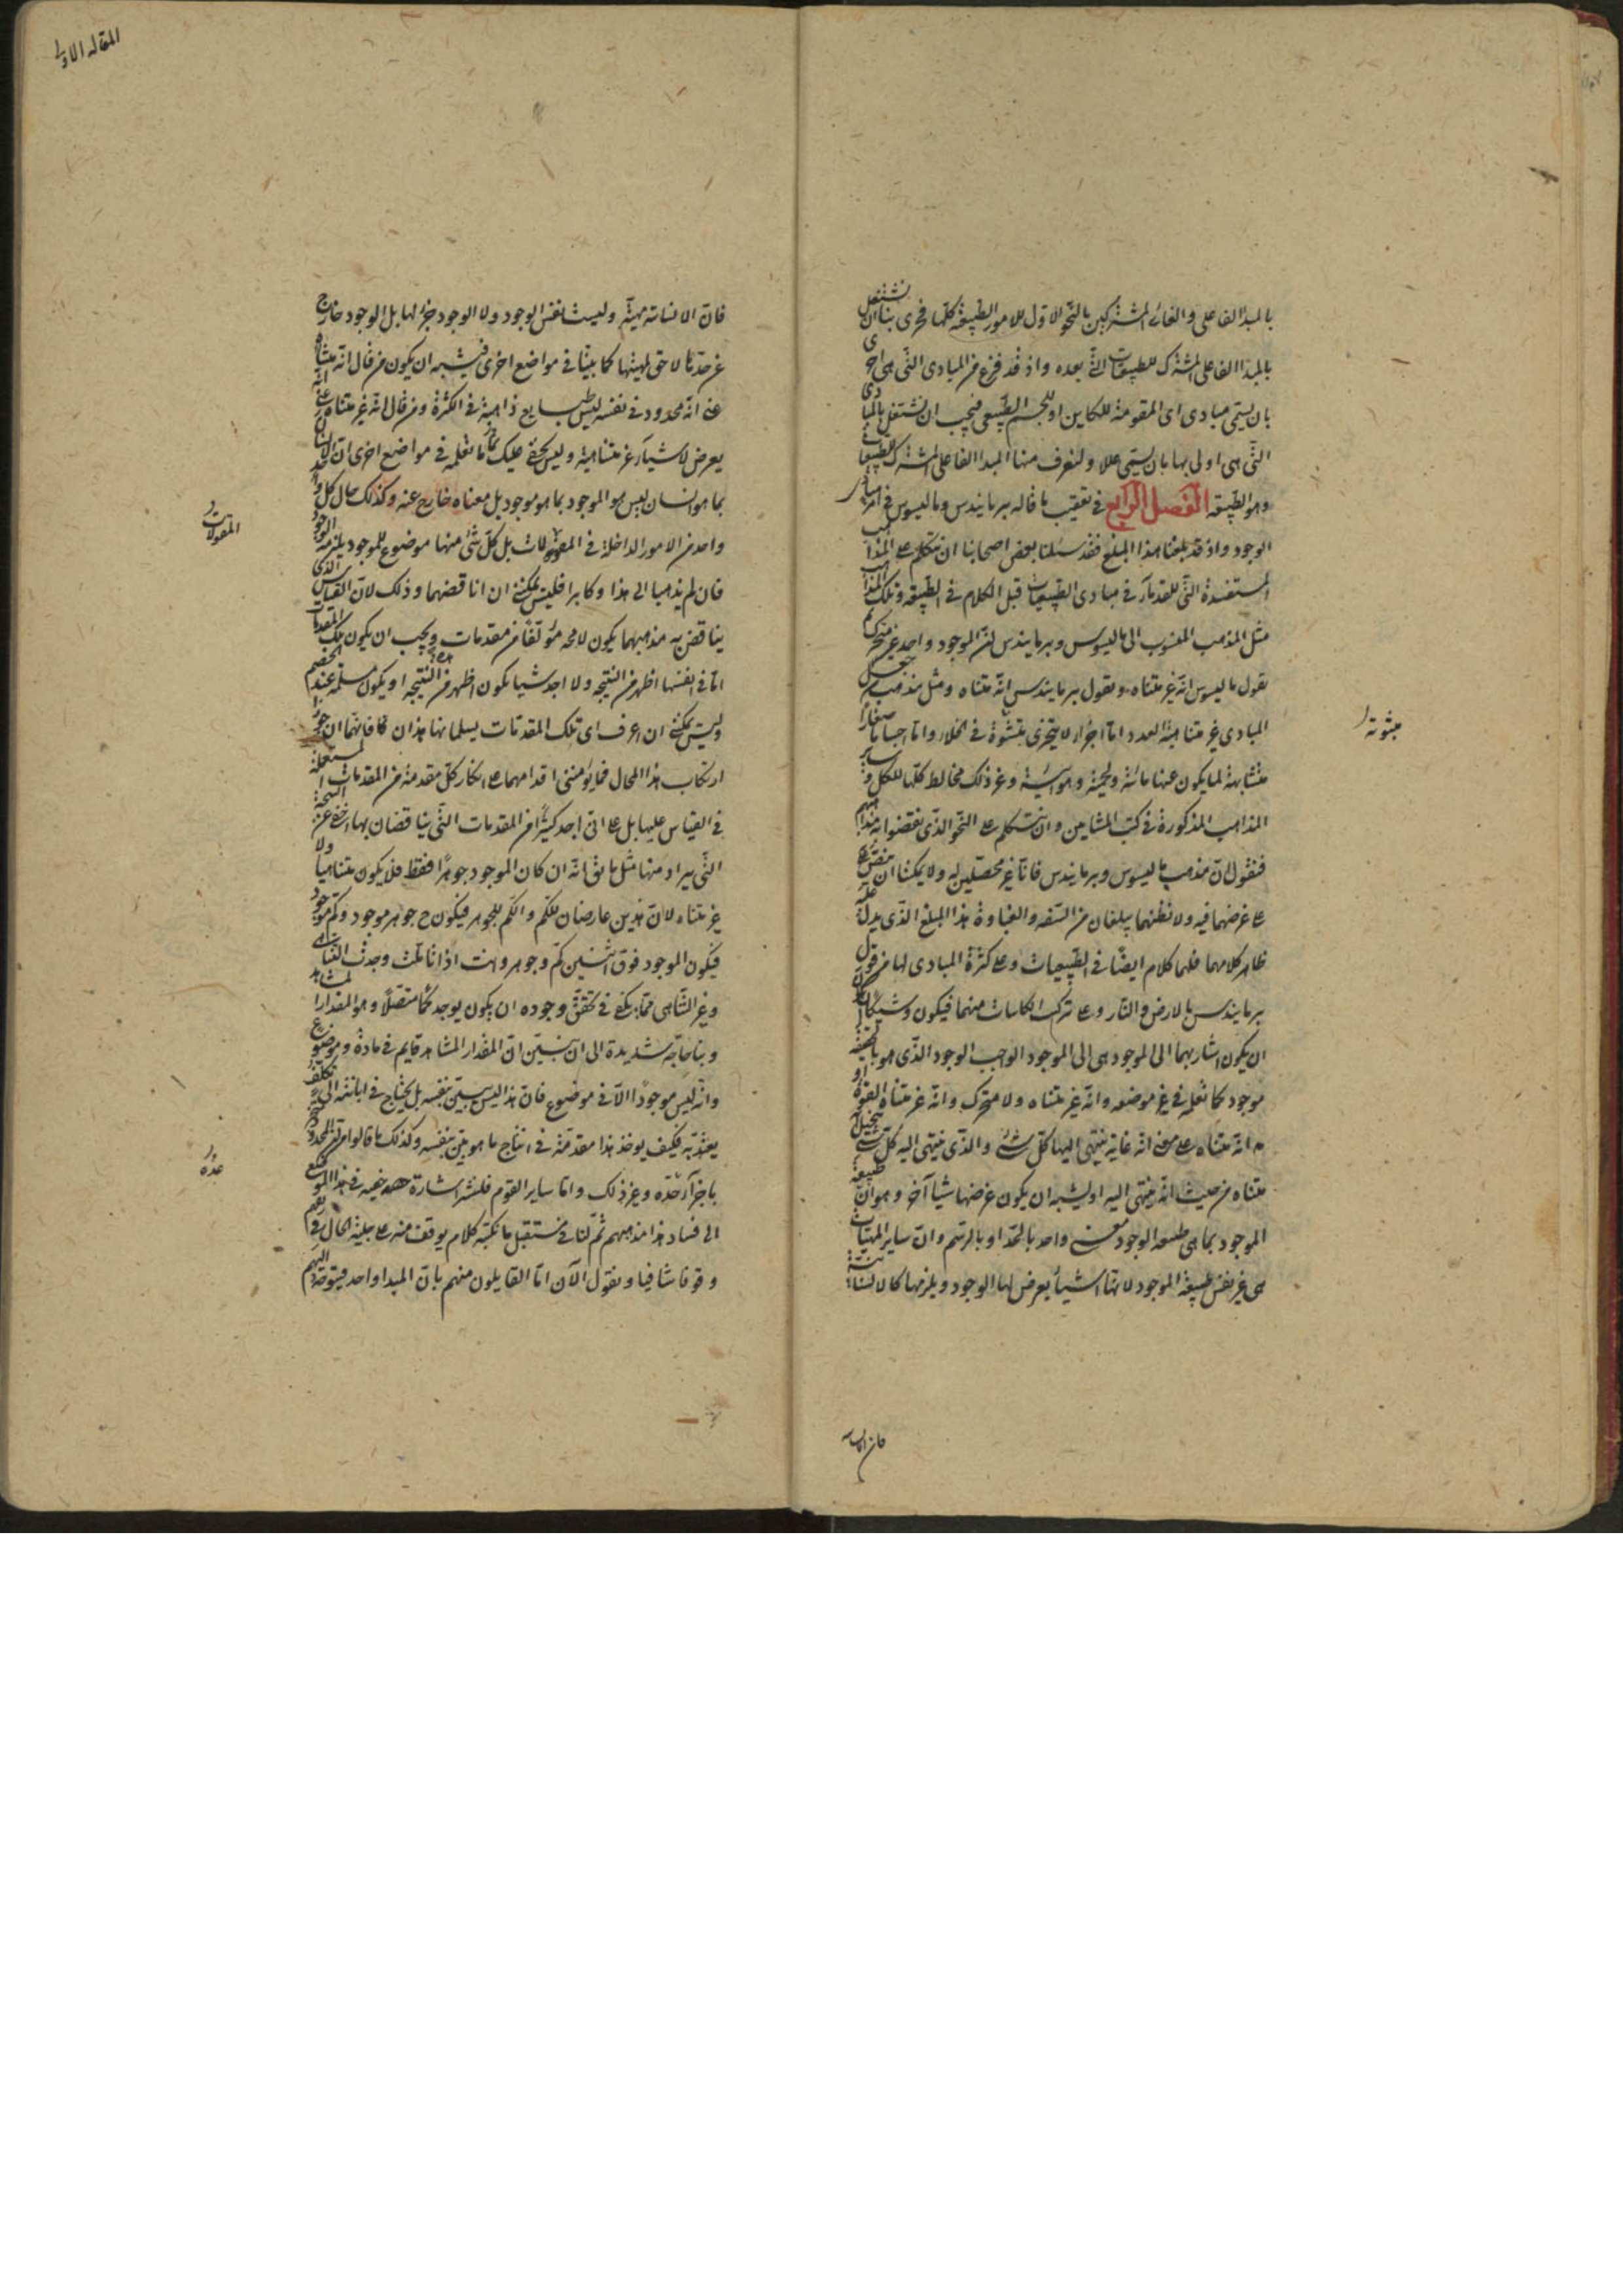 بالمبدأ الفاعلى والغائى المشتركين بالنحو الاول للامور الطبيعة كلها فحرى بنا ان نشتغل
بالمبدا الفاعلى المشترك للطبيعيات التى بعده واذ قد فرغ من المبادى التى هى احرى
بان يسمى مبادى اى المقومة للكاين او للجسم الطبيعى فيجب ان نشتغل بالمبادى
التى هى اولى بها بان يسمى عللا ولنعرف منها المبدا الفاعلى المشترك للطبيعيات
وهو الطبيعة الفصل الرابع فى تعقيب ما قاله برمانيدس وماليسوس فى امر مبادى
الوجود واذ قد بلغنا هذا المبلغ فقد سئلنا بعض اصحابنا ان نتكلم على المذاهب
المستفسدة التى للقدماء فى مبادى الطبيعيات قبل الكلام فى الطبيعة وتلك المذاهب
مثل المذهب المنسوب الى ماليسوس وبرمانيدس ان الموجود واحد غير متحرك ثم
يقول ماليسوس انه غير متناه ويقول برمانيدس انه متناه ومثل مذهب من جعل
المبادى غير متناهية العدد اما اجزاء لا يتجزى مبثوثة فى الخلاء واما اجساما صغارا
متشابهة لما يكون عنها مائية ولحمية وهوائية وغير ذلك مخالط كلها للكل وساير
المذاهب المذكورة فى كتب المشايين وان نتكلم على النحو الذى نقضوا به مذاهبهم
فنقول ان مذهب ماليسوس وبرمانيدس فانا غير محصلين له ولا يمكننا ان ننص
على غرضهما فيه ولا نظنهما يبلغان من السفه والغباوة هذا المبلغ الذى يدل عليه
ظاهر كلامهما فلهما كلام ايضا فى الطبيعيات وعلى كثرة المبادى لها من قول
برمانيدس بالارض والنار وعلى تركب الكاينات منهما فيكون وشيكا
ان يكون اشاربهما الى الموجود هى الى الموجود الواجب الوجود الذى هو بالحقيقة
موجود كما تعلمه فى غير موضعه وانه غير متناه ولا متحرك وانه غير متناه القوة او
انه متناه على معنى انه غاية ينتهى اليها كل شئ والذى ينتهى اليه كل شئ يتخيل انه
متناه من حيث انه ينتهى اليه او يشبه ان يكون غرضهما شيئا آخر وهو ان طبيعة
الموجود بما هى طبيعة الوجود معنى واحد بالحد او بالرسم وان ساير المهيات
هى غير نفس طبيعة الموجود لانها اشياء يعرض لها الوجود ويلزمها كالانسانية
مبثوثة
فان الانسانية
المقاله الاولى
فان الانسانية مهية وليست نفس الوجود ولا الوجود جزء لها بل الوجود خارج
عن حدها لاحق لمهيتها كما بينا فى مواضع اخرى فيشبه ان يكون من قال انه متناه
عنى انه محدود فى نفسه ليس طبايع ذاهبة فى الكثرة ومن قال انه غير متناه عنى انه
يعرض لاشياء غير متناهية وليس يخفى عليك مما تعلمه فى مواضع اخرى ان الانسان
بما هو انسان ليس هو الموجود بما هو موجود بل معناه خارج عنه وكذلك حال كل
واحد من الامور الداخلة فى المقولات بل كل شئ منها موضوع للموجود يلزمه الوجود
فان لم يذهبا الى هذا وكابرا فليس يمكننى ان اناقضهما وذلك لان القياس الذى
يناقض به مذهبهما يكون لا محه مؤلفا من مقدمات ويجب ان يكون تلك المقدمات
اما فى انفسها اظهر من النتيجه ولا اجد شيئا يكون اظهر من هذه النتيجه او يكون مسلمة عند الخصم
وليس يمكننى ان اعرف اى تلك المقدمات يسلمانها هذان فانهما ان جوزا
ارتكاب هذا المحال فما يؤمننى اقدامهما على انكار كل مقدمة من المقدمات المستعملة
فى القياس عليهما بل على انى اجد كثيرا من المقدمات التى يناقضان بها اخفى من النتيجة
التى يراد منها مثل ما يق انه ان كان الموجود جوهرا فقط فلا يكون متناهيا ولا
غير متناه لان هذين عارضان للكم والكم للجوهر فيكون ح جوهر موجود وكم موجود
فيكون الموجود فوق اثنين كم وجوهر وانت اذا تاملت وجدت التناهى
وغير التناهى مما يكفى فى تحقق وجوده ان يكون يوجد كما متصلا وهو المقدار المشاهد
وبنا حاجة شديدة الى ان نبين ان المقدار المشاهد قايم فى مادة وموضوع
وانه ليس موجودا الا فى موضوع فان هذا ليس ببين بنفسه بل يحتاج فى ابانته الى تكلف
يعتد به فكيف يوخذ هذا مقدمة فى انتاج ما هو بين بنفسه وكذلك ما قالوا من
باجزاء حده وغير ذلك واما ساير القوم فلنشر اشارة خفيفة فى هذا الموضع
الى فساد مذاهبهم ثم لنا فى مستقبل ما نكتبه كلام يوقف منه على جلية الحال
وقوفا شافيا ونقول الآن اما القايلون منهم بان المبدا واحد فيتوجه اليهم
المقولات
عده